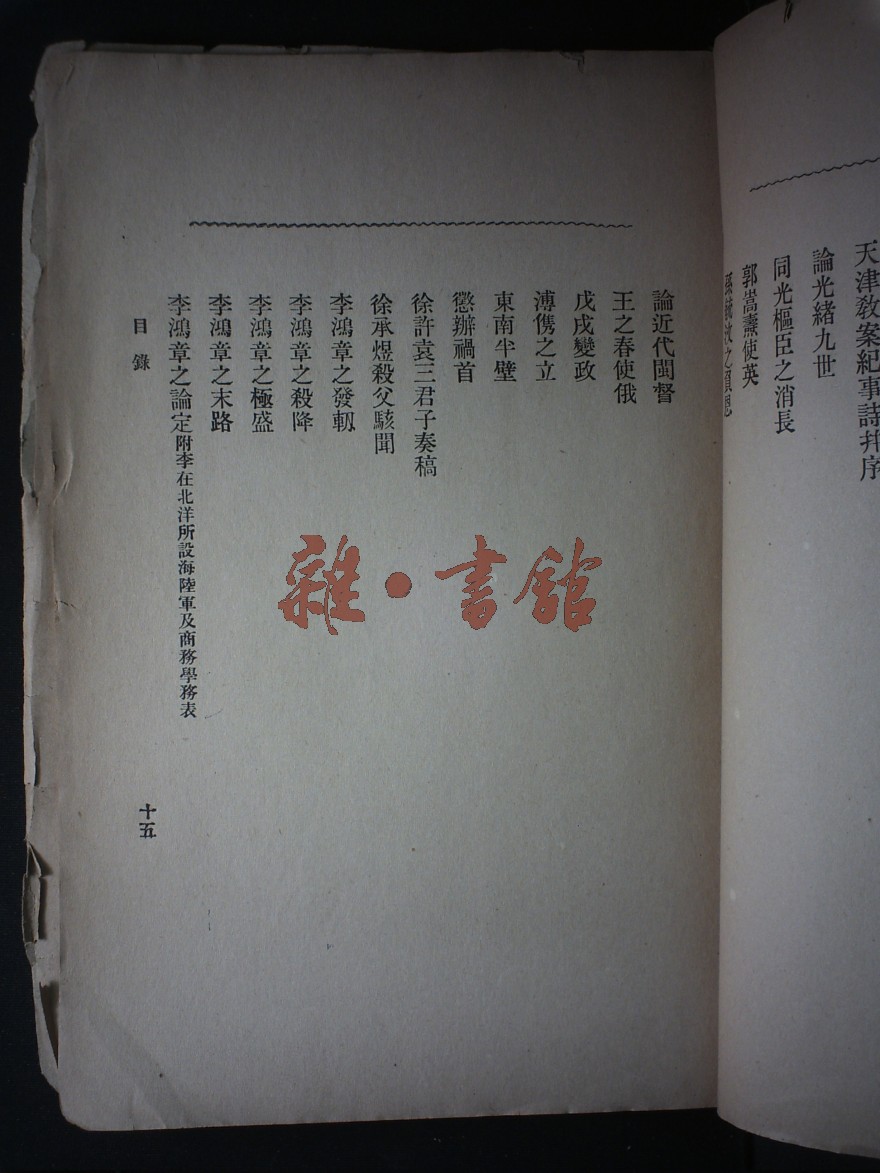 天津敎案紀事詩幷序
論光緒九世
同光樞臣之消長
郭嵩燾使英
論近代閩督
王之春使俄
戊戌變政
溥儁之立
東南半壁
懲辦禍首
徐許袁三君子奏稿
徐承煜殺父駭聞
李鴻章之發軔
李鴻章之殺降
李鴻章之極盛
李鴻章之末路
李鴻章之論定附李在北洋所設海陸軍及商務學務表
目錄
十五
雜·書館